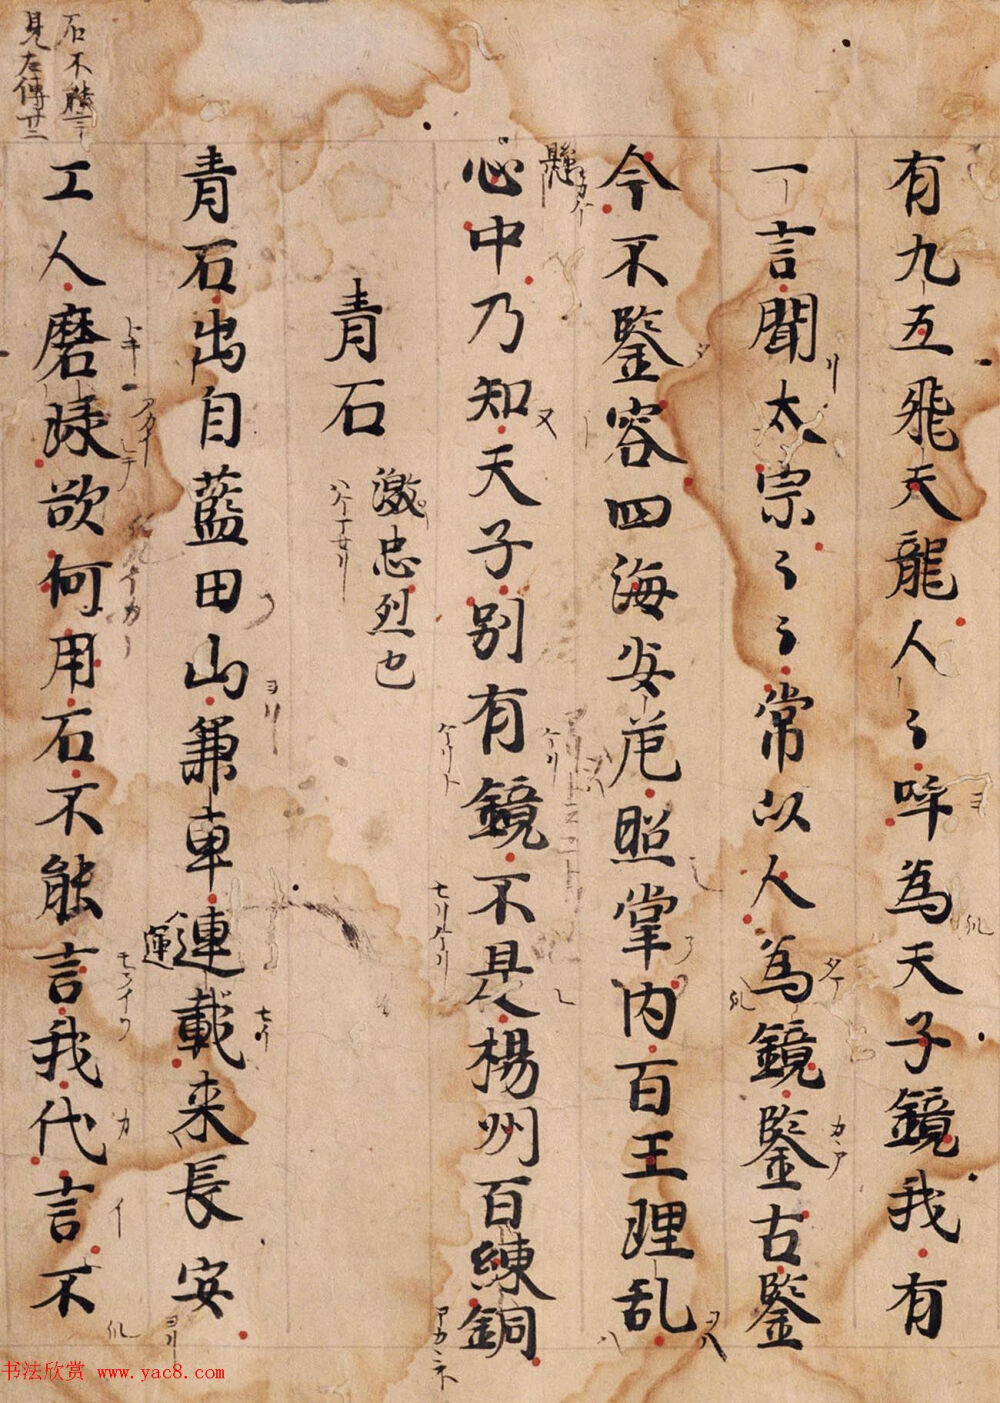 有九五飛天龍人〻呼為天子鏡我有
一言聞太宗〻〻常以人為鏡鑒古鑒
今不鑒容四海安危照掌内百王理乱
懸
心中乃知天子別有鏡不是楊州百練銅
青石 激忠烈也
青石出自藍田山兼車運載来長安
運
工人磨琢欲何用石不能言我代言不
石不能言
見左傳廿二
书法欣赏 www.yac8.com